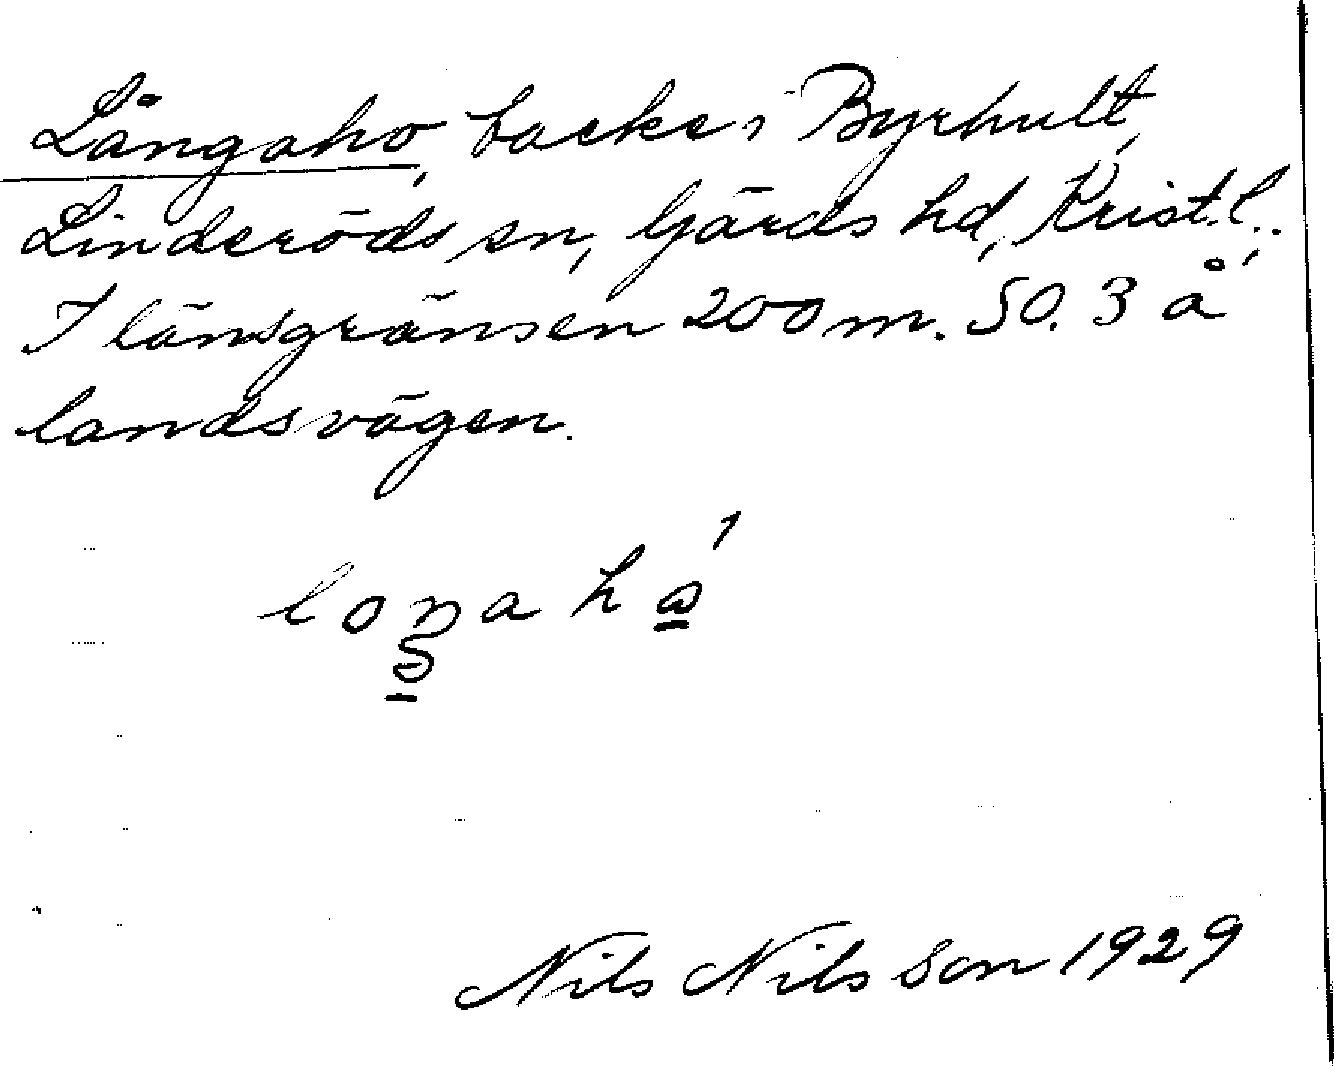 Långaho, backe i Byrhult,
Linderöds sn, Gärds hd, Krist. l.
I länsgränsen 200 m. SO. 3 å
landsvägen.
loŋahɷ́
Nils Nilsson 1929